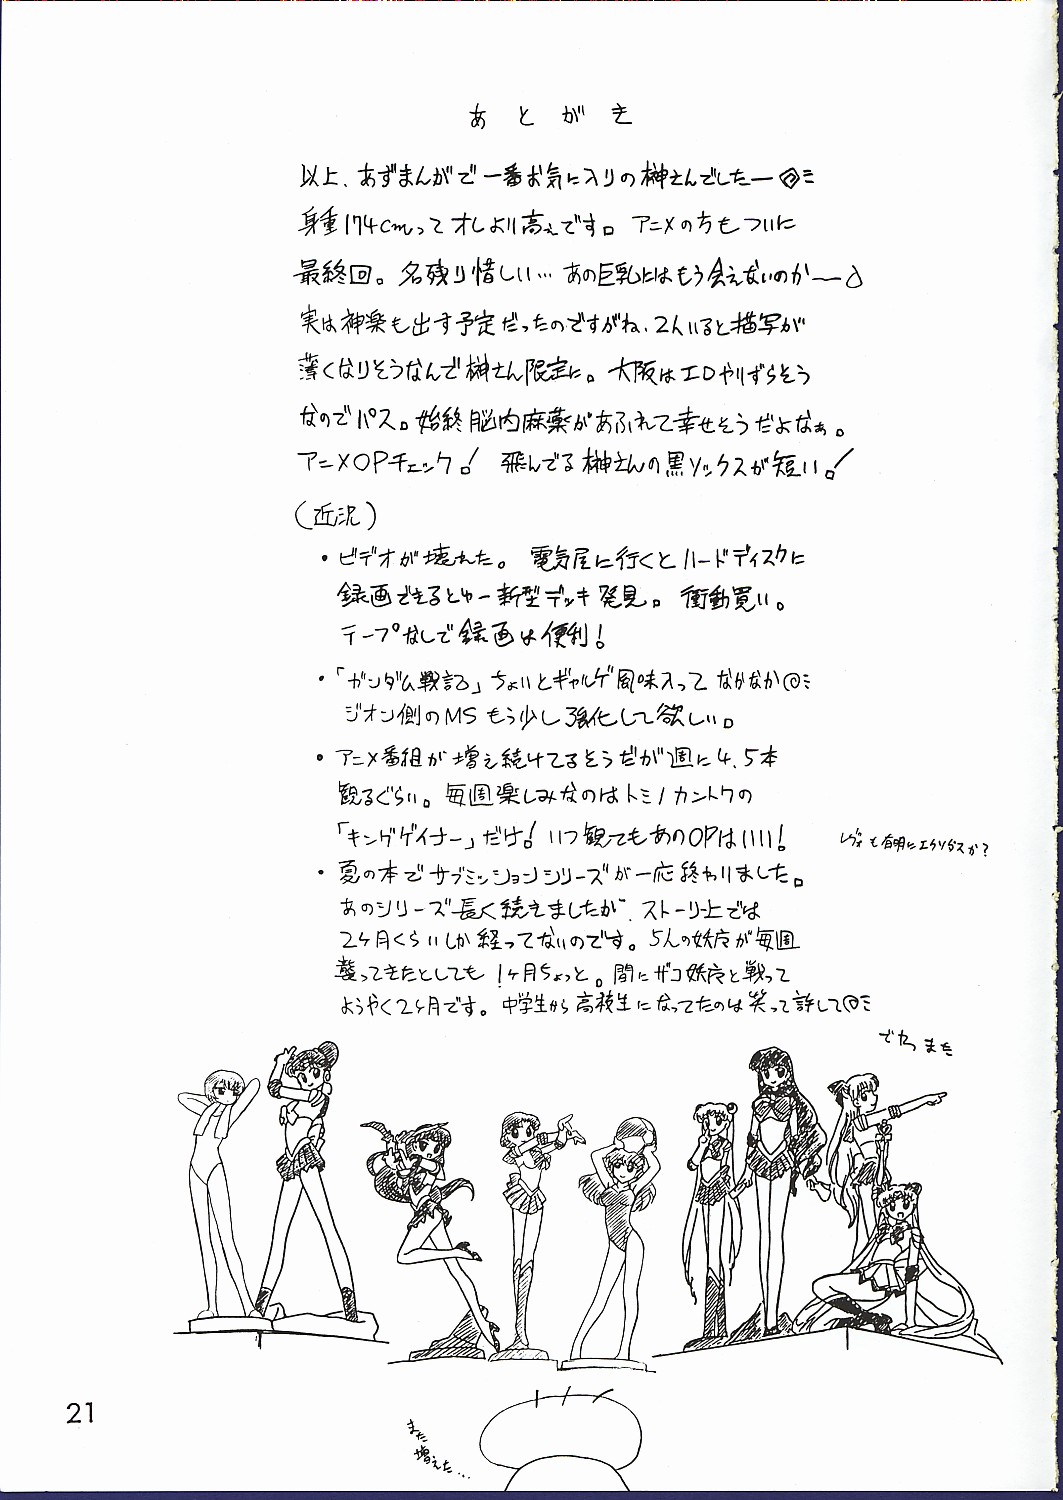 あとがき
以上、あずまんがで一番お気に入りの榊さんでしたー
身重174cmってオレより高ぇです。アニメの方もついに
最終回。名残り惜しい…あの巨乳にはもう会えないのか〜
実は神楽も出す予定だったのですがね、2人いると描写が
薄くなりそうなんで榊さん限定に。大阪はエロやりずらそう
なのでパス。始終脳内麻薬があふれて幸せそうだよなぁ。
アニメOPチェック!飛んでる榊さんの黒ソックスが短い!
(近況)
・ビデオが壊れた。電気屋に行くとハードディスクに
録画できるとゆー新型デッキ発見。衝動買い。
テープなしで録画は便利!
・「ガンダム戦記」ちょいとギャルゲ風味入ってなかなか
ジオン側のMSもう少し強化して欲しい。
・アニメ番組が増え続けてるそうだが週に4、5本
観るぐらい。毎週楽しみなのはトミノカントクの
「キングゲイナー」だけ!いつ観てもあのOPはいい!
レヴォも有明にエクソダスか?
・夏の本でサブミッションシリーズが一応終わりました。
あのシリーズ長く続きましたが、ストーリー上では
2ヶ月くらいしか経ってないのです。5人の妖魔が毎週
襲ってきたとしても1ヶ月ちょっと。間にザコ妖魔と戦って
ようやく2ヶ月です。中学生から高校生になってたのは笑って許して
でわっまた
また
増えた…
21